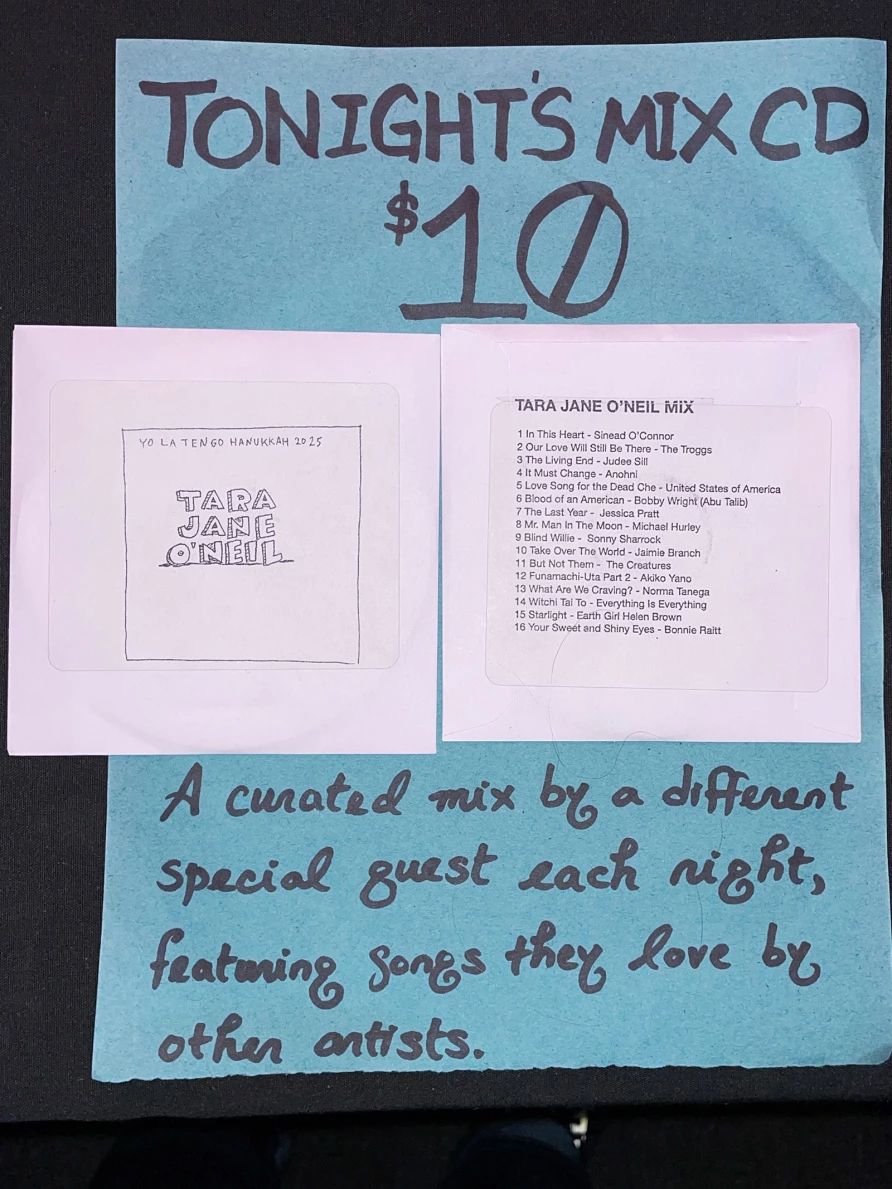 TONIGHT'S MIX CD
$10
YO LA TENGO HANUKKAH 2025
TARA
JANE
O'NEIL
TARA JANE O'NEIL MiX
1 In This Heart - Sinead O'Connor
2 Our Love Will Still Be There - The Troggs
3 The Living End - Judee Sill
4 It Must Change - Anohni
5 Love Song for the Dead Che - United States of America
6 Blood of an American - Bobby Wright (Abu Talib)
7 The Last Year - Jessica Pratt
8 Mr. Man In The Moon - Michael Hurley
9 Blind Willie - Sonny Sharrock
10 Take Over The World - Jaimie Branch
11 But Not Them - The Creatures
12 Funamachi-Uta Part 2 - Akiko Yano
13 What Are We Craving? - Norma Tanega
14 Witchi Tai To - Everything Is Everything
15 Starlight - Earth Girl Helen Brown
16 Your Sweet and Shiny Eyes - Bonnie Raitt
A curated mix by a different
special guest each night,
featuring songs they love by
other artists.